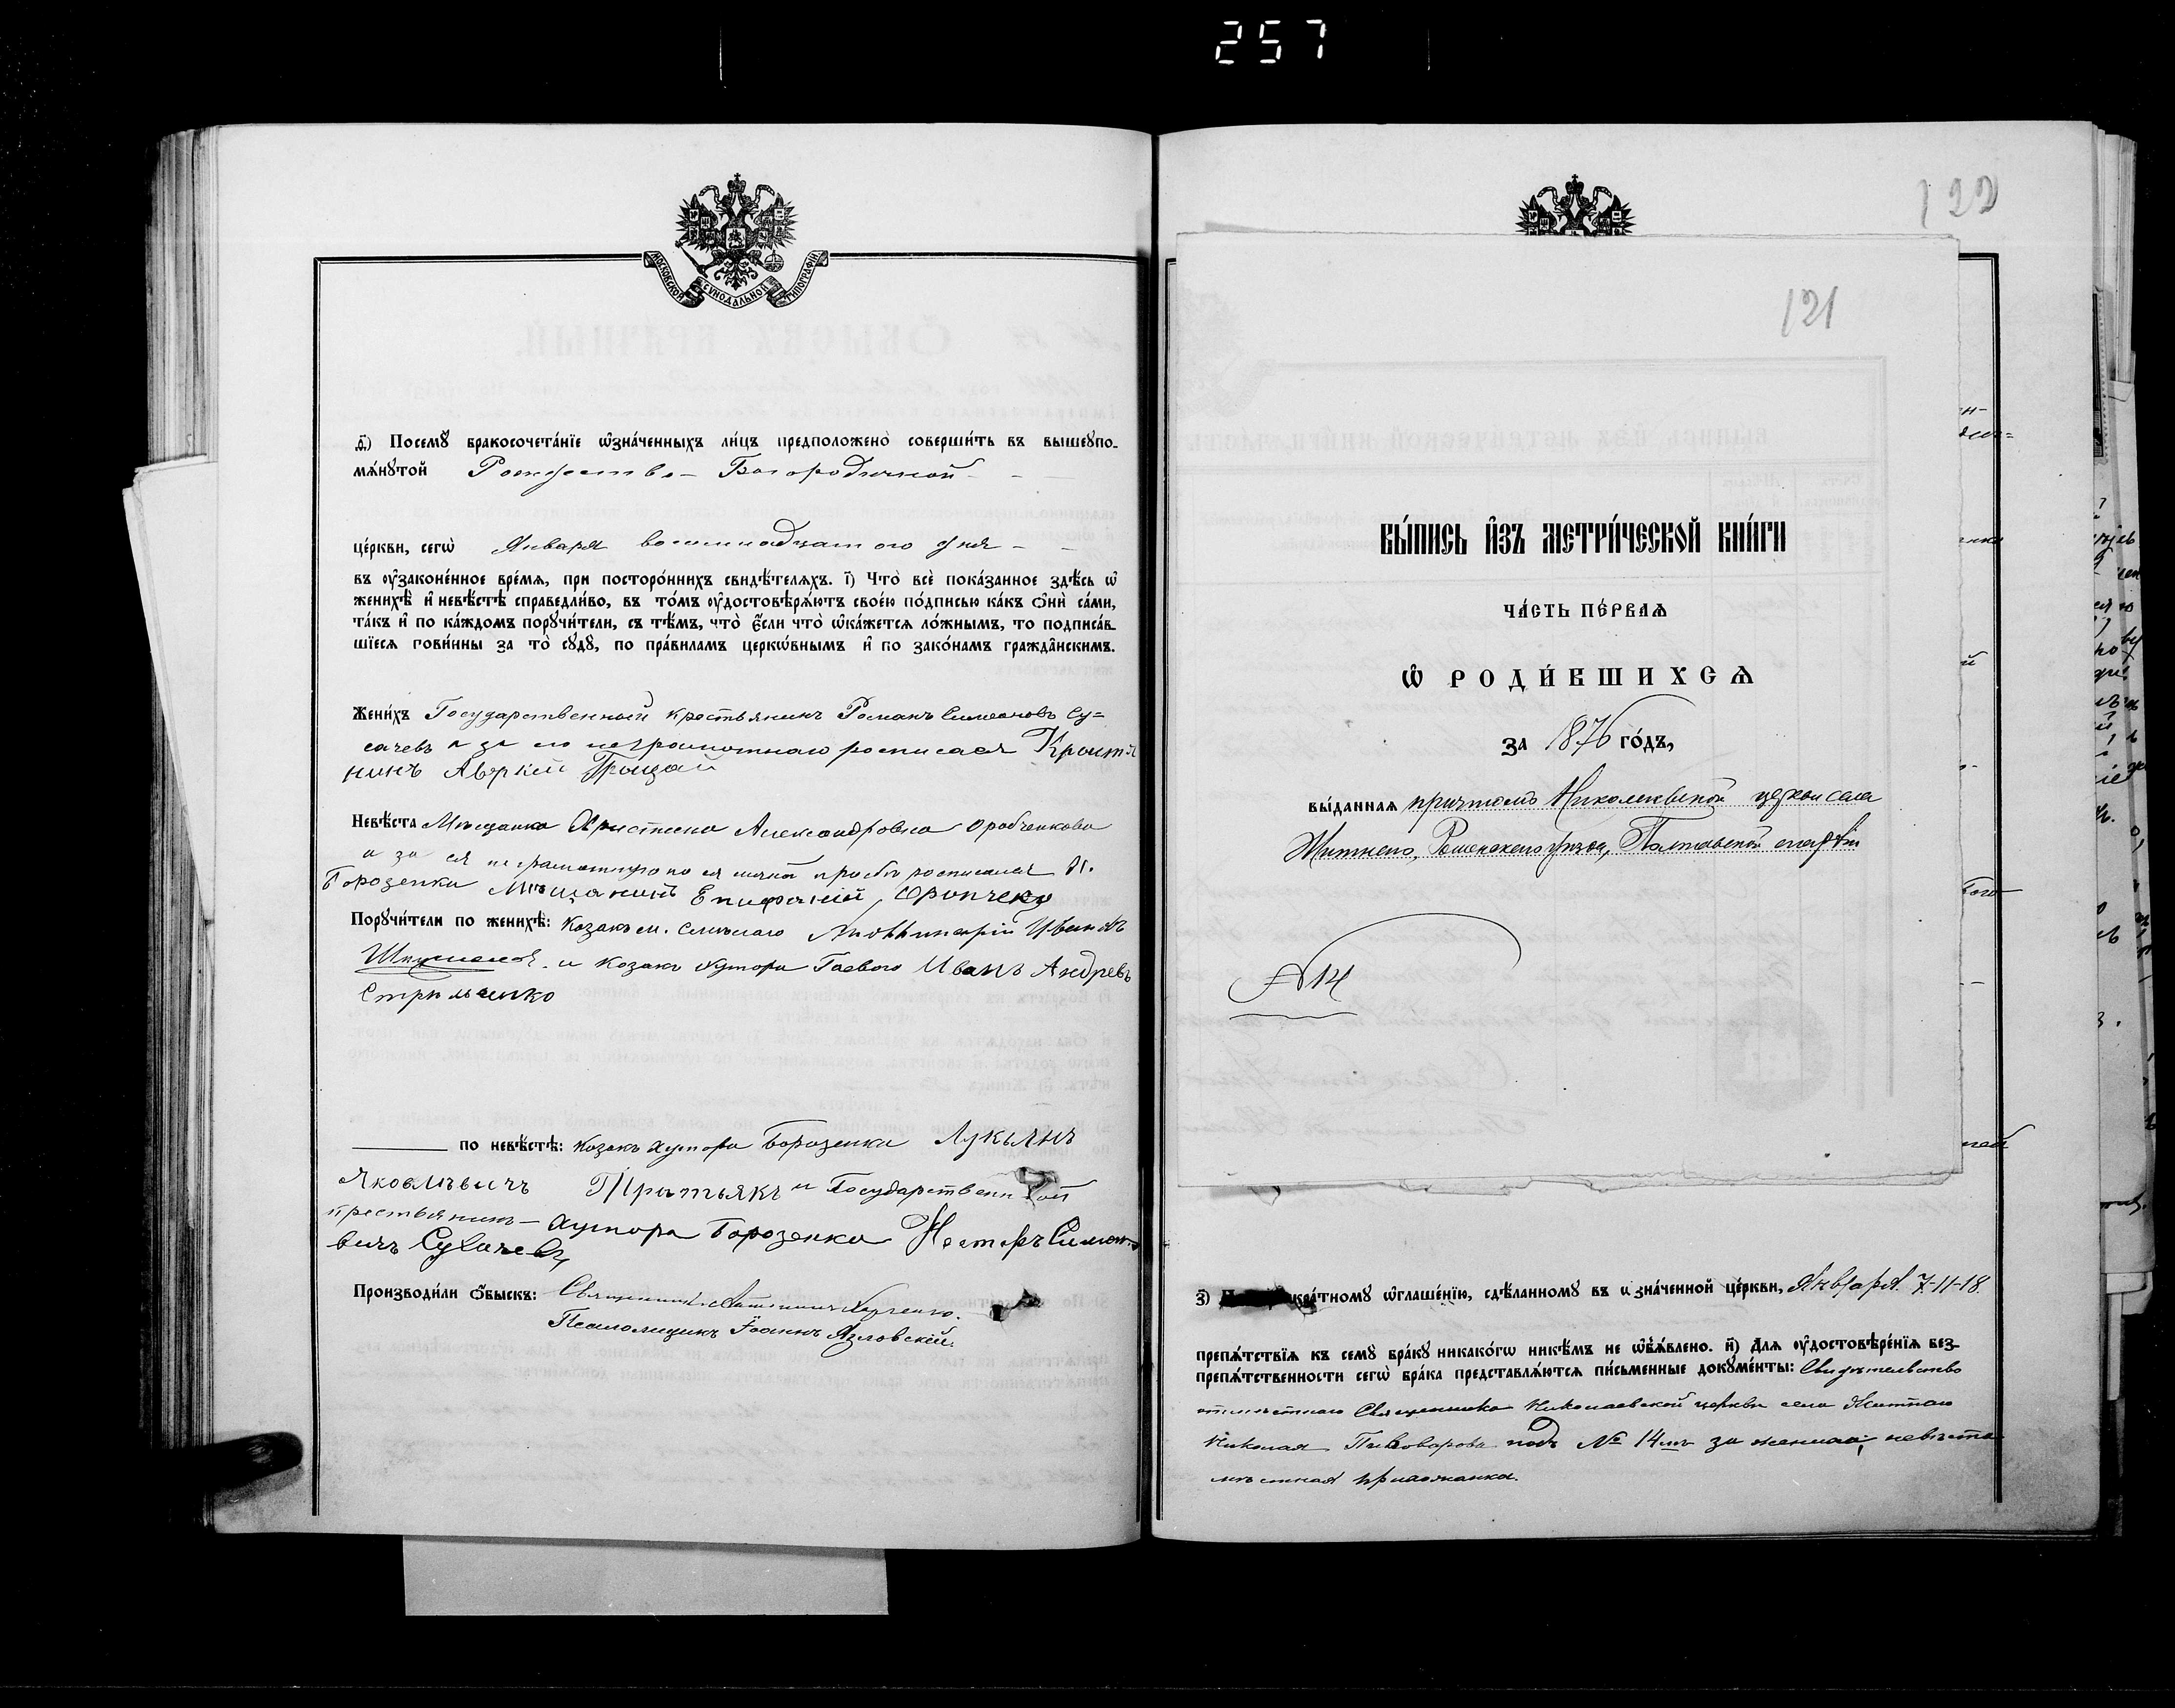 257
МОСКОВСКОЙ СѴНОДАЛЬНОЙ ТИПОГРАФІИ
д҃і) Посемꙋ̀ бракосочета́нїе ѡ҆зна́ченныхъ ли́цъ предположено̀ соверши́ть въ вышеꙋпо-
мѧ́нꙋтой Рождество- Богородичной
це́ркви, сегѡ̀ Января восемнадцатого дня
въ ᲂу҆законе́нное вре́мѧ, при посторо́ннихъ свидѣ́телѧхъ. і҃) Что̀ всѐ пока́занное здѣ́сь ѡ҆
женихѣ̀ и҆ невѣ́стѣ справедли́во, въ то́мъ ᲂу҆достовѣрѧ́ютъ свое́ю по́дписью ка́къ ѻ҆нѝ са́ми,
та́къ и҆ по ка́ждомъ порꙋчи́тели, съ тѣ́мъ, что̀ є҆́сли что̀ ѡ҆ка́жется ло́жнымъ, то подписа́в-
шїесѧ пови́нны за то̀ сꙋдꙋ̀, по пра́виламъ церко́внымъ и҆ по зако́намъ гражда̑нскимъ.
Жени́хъ Государственный крестьянинъ Романъ Симеоновъ Су-
хачевъ а за его неграмотнаго росписался Крестя
нинъ Авркій Грицай
Невѣ́ста Мѣщанка Христина Александровна Оробченкова
а за ея неграмотную по ея личной просьбѣ росписался х.
Борозенки Мѣщанинъ Епифаній
Порꙋчи́тели по женихѣ̀: Козакъ м. Смѣлаго Ивановъ
и козакъ хутора Гаевого Иванъ Андреевъ
Стрильченко
по невѣ́стѣ: Козакъ хутора Борозенка Лукьянъ
Яковлевичъ Притьякъ и Государственный
крестьянинъ- хутора Борозенка Несторъ Симоно-
вичъ Сухачевъ
Производи́ли ѻ҆́быскъ: Священникъ
Псаломщикъ Іоаннъ Язловскій.
122
121
ВЫ́ПИСЬ И҆ЗЪ МЕТРИ́ЧЕСКОЙ КНИ́ГИ
ЧА́СТЬ ПЕ́РВАѦ
Ѡ҆ РОДИ́ВШИХСѦ
за 1876 го́дъ,
вы́данная причтомъ Николаевской церкви села
Житнего, Роменскаго уѣзда, Полтавской епархіи
№ 14
з҃) кра́тному ѡ҆глаше́нїю, сдѣ́ланному въ ѡ҆зна́ченной це́ркви, Января 7-11-18.
препѧ́тствїѧ къ семꙋ̀ бра́кꙋ никако́гѡ никѣ́мъ не ѡ҆б̾ѧ́влено. и҃) Для ᲂу҆достовѣре́нїѧ без-
препѧ́тственности сегѡ̀ бра́ка представлѧ́ются пи́сьменные докꙋме́нты: Свидѣтельство
отъ мѣстнаго Священника Николаевской церкви села Житнаго
Николая Пивоварова подъ № 14мъ за женихa; невѣста
мѣстная прихожанка.